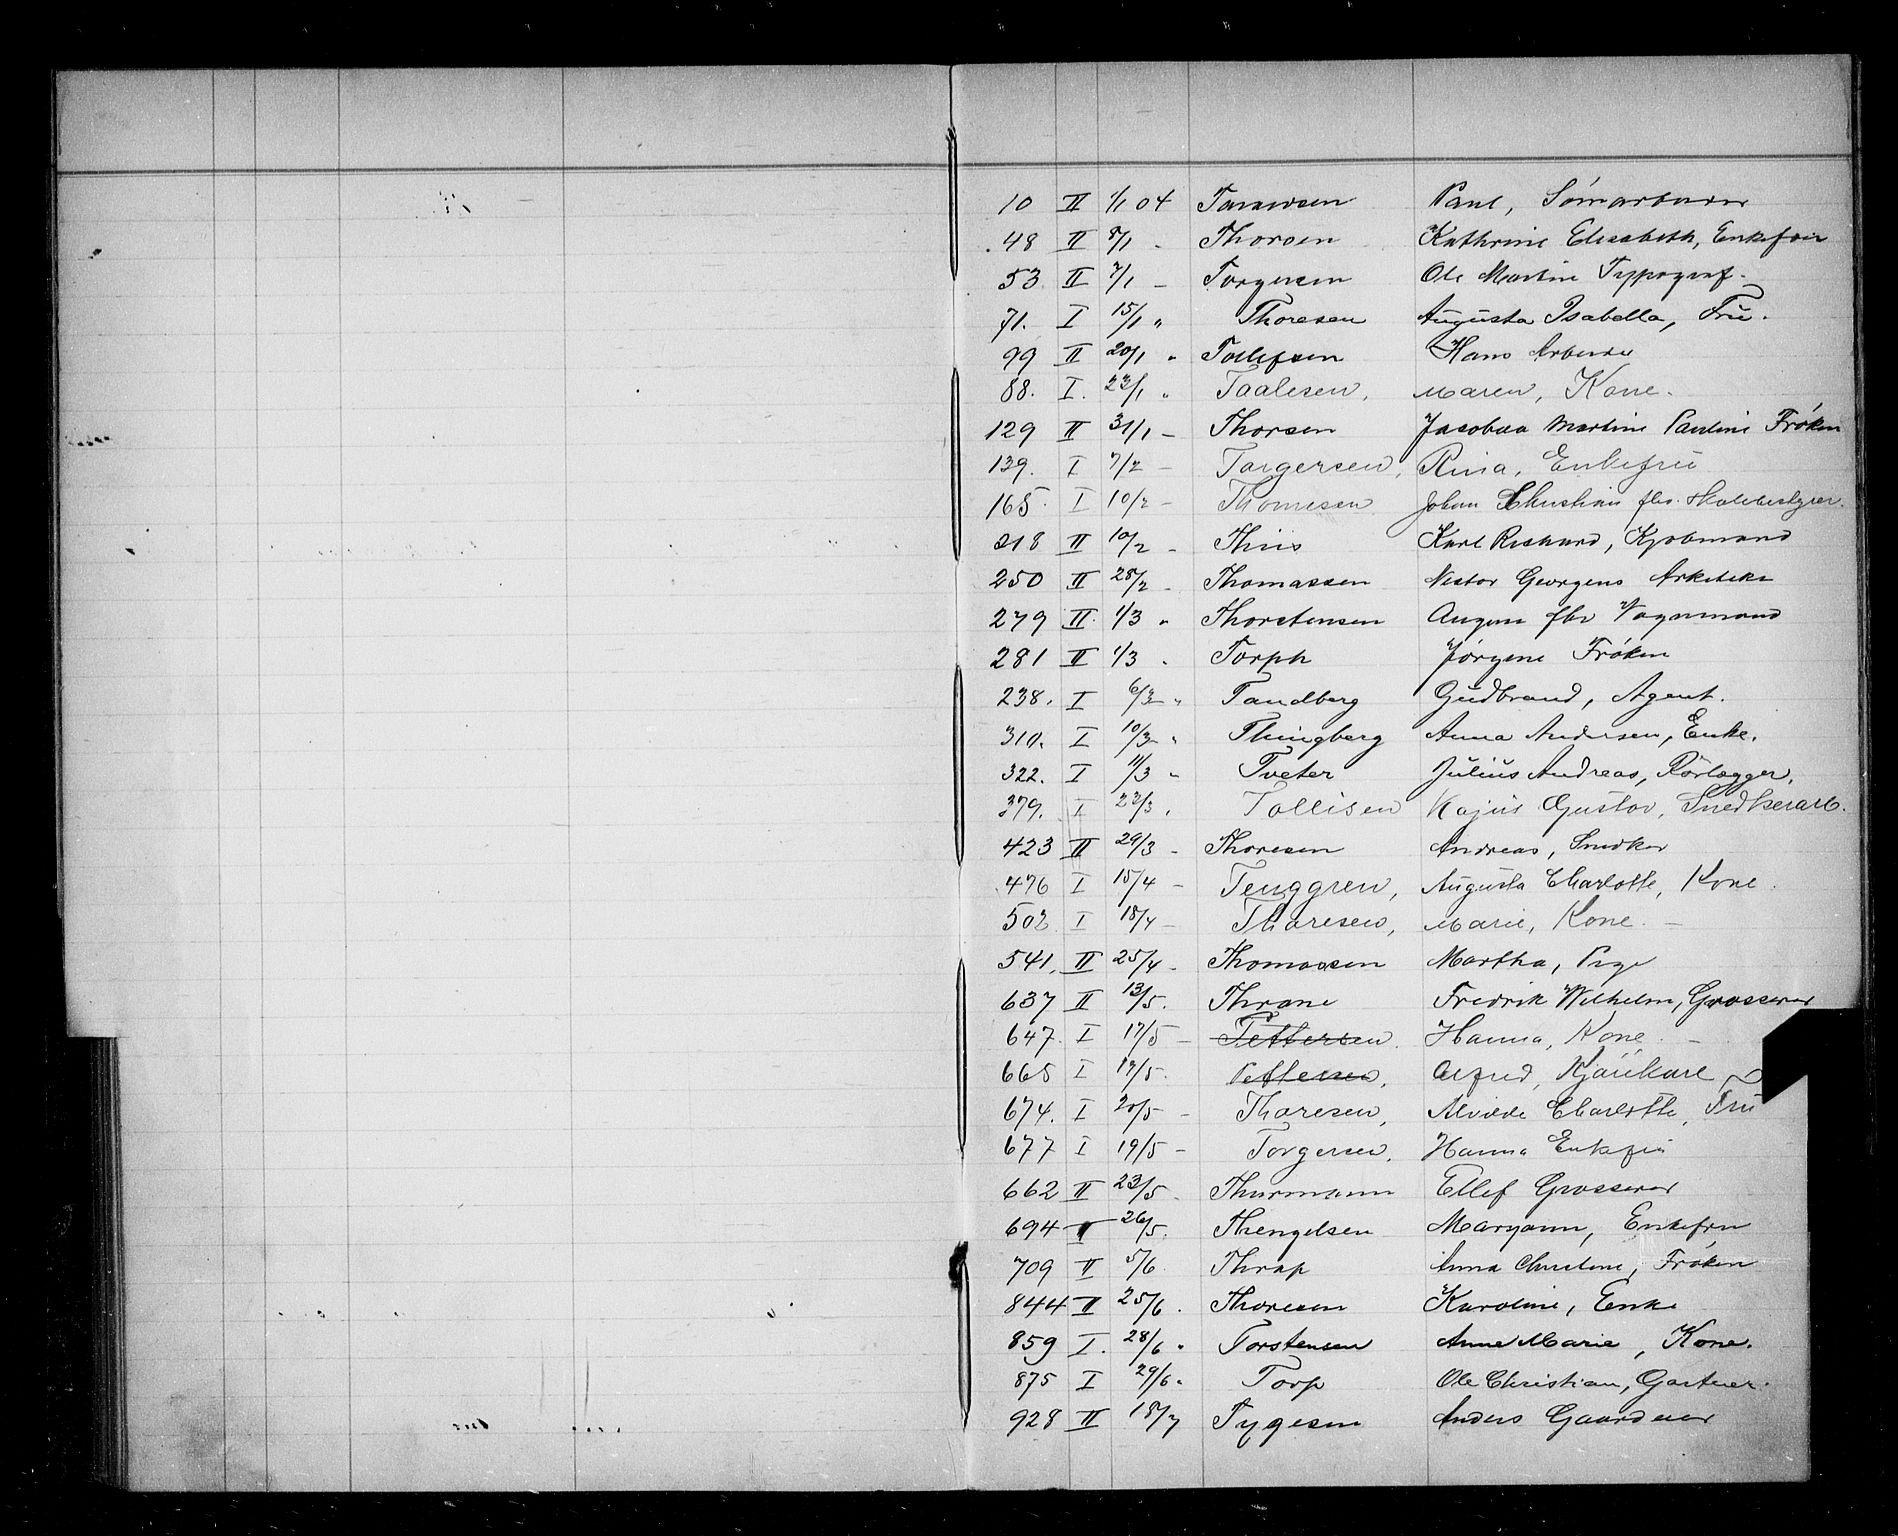 10 II 1/1 04 Paul,
48 II 8/1 - Thorsen Kathrine Elisabeth, Enkefru
53 II 7/1 - Torgersen Ole Martin Typograf -
71. I 15/1 " Thoresen Augusta Isabella, Fru.
99 II 20/1 " Tollefsen Hans Arbeider
88. I. 23/1 " Taalesen, Maren, Kone.
129 II 31/1 - Thorsen Jacobaa Martine Pauline Frøken
139. I 7/2 - Torgersen, Rina, Enkefru
165. I 10/2 - Thomesen Johan Christian fhv. Skolebestyrer.
218 II 10/2 - Thiis Karl Richard, Kjøbmand
250 II 28/2 - Thomassen Nestor Georgens Arkitekt
279 II. 1/3 " Thorstensen fhv Vognmand
281 II 1/3 . Torph Jørgine Frøken
238. I 6/3 - " Tandberg Gudbrand, Agent.
310. I 10/3 - " Thingberg Anna Andersen, Enke.
322. I 11/3 " Tveter Julius Andreas, Rørlægger.
379. I 23/3 . Tollisen Kajus Gustav, Snedkerarb.
423 II 29/3 - Thoresen Andreas, Snedker
476 I 15/4 - Tenggren, Augusta Charlotte, Kone
502 I 18/4 - Thoresen, Marie, Kone. -
541. II 25/4 - Thomassen Martha, Pige
637 II 13/5. Thrane Fredrik Wilhelm, Grosserer
647. I 17/5 - Pettersen. Hanna, Kone. -
665 I 19/5. Pettersen, Alfred, Kjørekarl
674. I 20/5 - Thoresen, Alvilde Charlotte, Fru
677 I 19/5 - Torgersen. Hanna Enkefru
662 II 23/5 - Thurmann Ellef Grosserer
694 II 26/5. Thengelsen Maryann, Enkefru
709 II 5/6. Thrap Anna Christine, Frøken
844 II 25/6. Thoresen Karoline, Enke
859 I. 28/6 " Torstensen Anne Marie, Kone.
875 I 29/6. Torp Ole Christian, Gartner.
928 II 18/7 Tygesen Anders Gaardeier